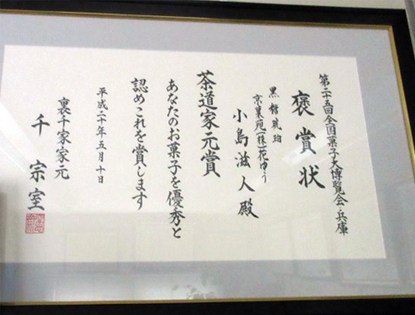 第二十五回全国菓子大博覧会・兵庫
褒賞状
京菓苑(株)一花ゆう
小島滋人殿
茶道家元賞
あなたのお菓子を優秀と
認めこれを賞します
平成二十年五月十日
裏千家家元
千宗室